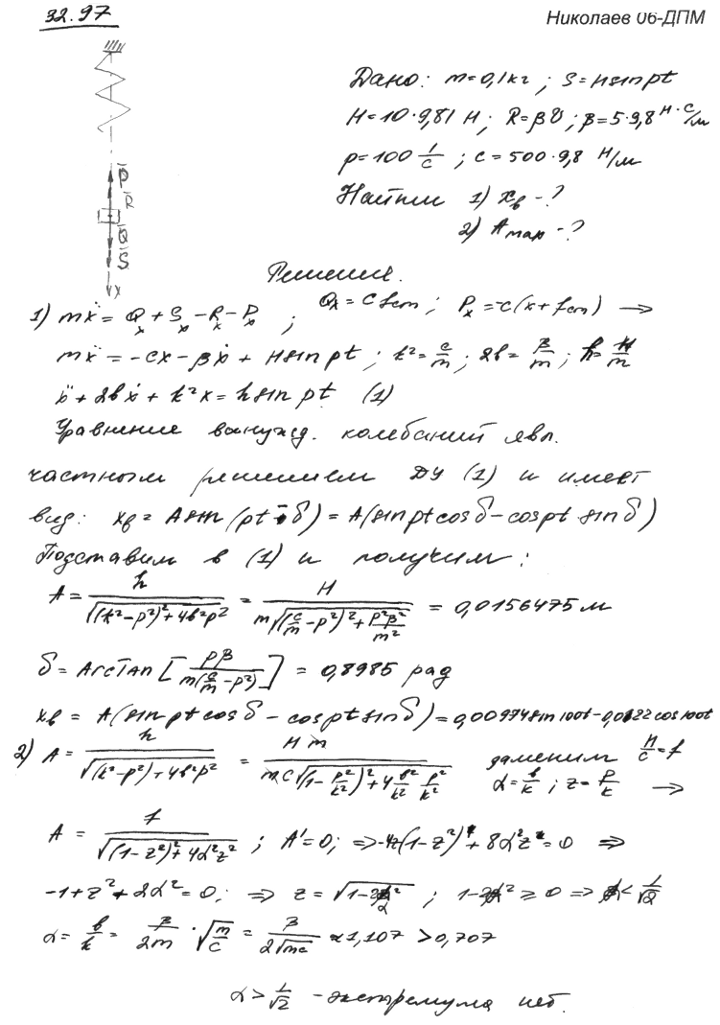 32.97
Николаев 06-ДПМ
Дано: m=0,1кг ; S=Hsinpt
H=10·9,81 Н; R=βυ; β=5·9,8 Н·с/м
p=100 1/с ; c=500·9,8 Н/м
Найти 1) xв -?
2) Amax -?
P
R
Q
S
x
Решение.
1) mẍ = Qx + Sx - Rx - Px ; Qx = Cfcm ; Px = -c(x+fcm) →
mẍ = -cx - βẋ + Hsin pt ; k² = c/m ; 2b = β/m ; h = H/m
ẍ + 2bẋ + k²x = hsin pt (1)
Уравнение вынужд. колебаний явл.
частным решением ДУ (1) и имеет
вид: xв = Asin(pt - δ) = A(sinptcosδ - cospt sinδ)
Подставим в (1) и получим:
A = h/√((k²-p²)²+4b²p²) = H/(m√((c/m - p²)² + p²β²/m²)) = 0,0156475 м
δ = ArcTan [pβ/(m(c/m - p²))] = 0,8985 рад
xв = A(sin ptcosδ - cosptsinδ) = 0,00974sin100t - 0,0122cos100t
2) A = h/√((k²-p²)+4b²p²) = Hm/(mc√((1-p²/k²)²+4 b²/k² p²/k²)) заменим H/c = f
α = b/k ; z = p/k →
A = f/√((1-z²)²+4α²z²) ; A'=0; ⇒ -4z(1-z²) + 8α²z = 0 ⇒
-1+z²+2α²=0; ⇒ z = √(1-2α²) ; 1-2α² ≥ 0 ⇒ α < 1/√2
α = b/k = β/2m · √(m/c) = β/(2√mc) ≈ 1,107 > 0,707
α > 1/√2 - экстремума нет.